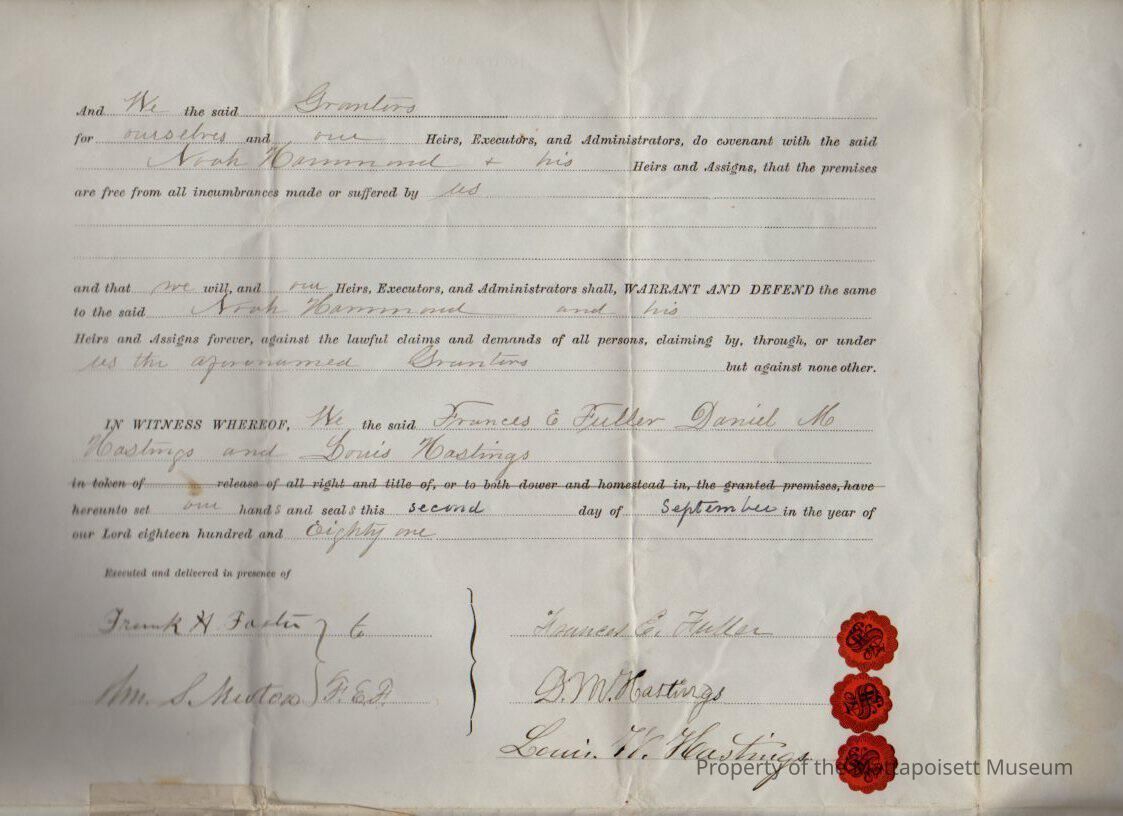 And We the said Grantors
for ourselves and our Heirs, Executors, and Administrators, do covenant with the said
Noah Hammond + his Heirs and Assigns, that the premises
are free from all incumbrances made or suffered by us
and that we will, and our Heirs, Executors, and Administrators shall, WARRANT AND DEFEND the same
to the said Noah Hammond and his
Heirs and Assigns forever, against the lawful claims and demands of all persons, claiming by, through, or under
us the aforenamed Grantors but against none other.
IN WITNESS WHEREOF, We the said Frances E Fuller Daniel M
Hastings and Louis Hastings
in token of release of all right and title of, or to both dower and homestead in, the granted premises, have
hereunto set our hands and seals this second day of September in the year of
our Lord eighteen hundred and Eighty one
Executed and delivered in presence of
Frank H Foster } to Frances E. Fuller
Wm. S. Newton } F. E. F. D. M. Hastings
Louis W. Hastings
Property of the Mattapoisett Museum